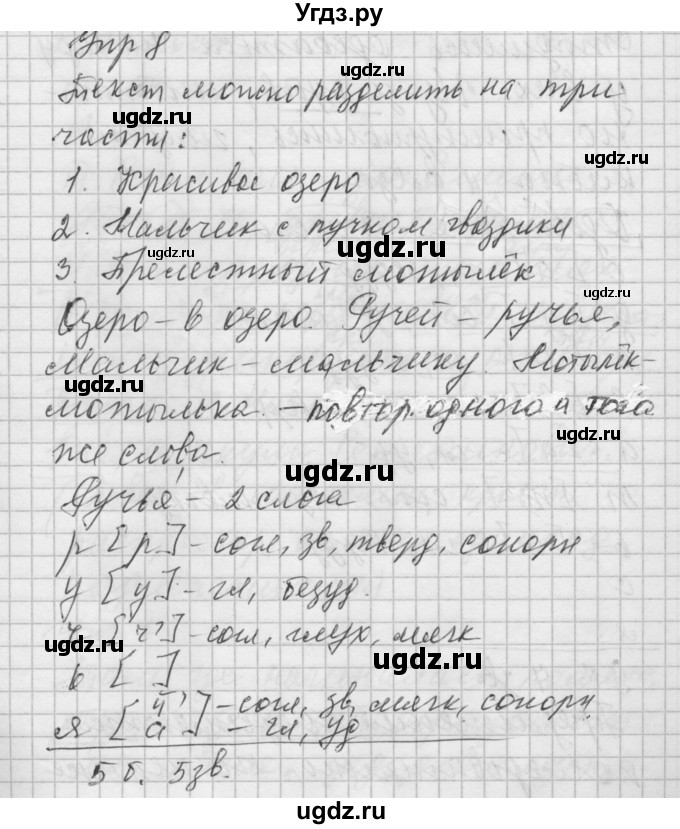 Угдз.ру
Упр 8
Текст можно разделить на три
части:
1. Красивое озеро
2. Мальчик с пучком гвоздики
3. Прелестный мотылёк
Озеро – в озеро. Ручей – ручья,
мальчик – мальчику. Мотылёк-
мотылька. – повтор одного и того
же слова.
Ручья́ – 2 слога
р [р] – согл, зв, тверд, сонорн
у [у] – гл, безуд.
ч [ч'] – согл, глух, мягк
ь [ ]
я [й'] – согл, зв, мягк, сонорн
[а] – гл, уд
5 б. 5 зв.
ugdz.ru
ugdz.ru
ugdz.ru
ugdz.ru
ugdz.ru
ugdz.ru
ugdz.ru
ugdz.ru
ugdz.ru
ugdz.ru
ugdz.ru
ugdz.ru
ugdz.ru
ugdz.ru